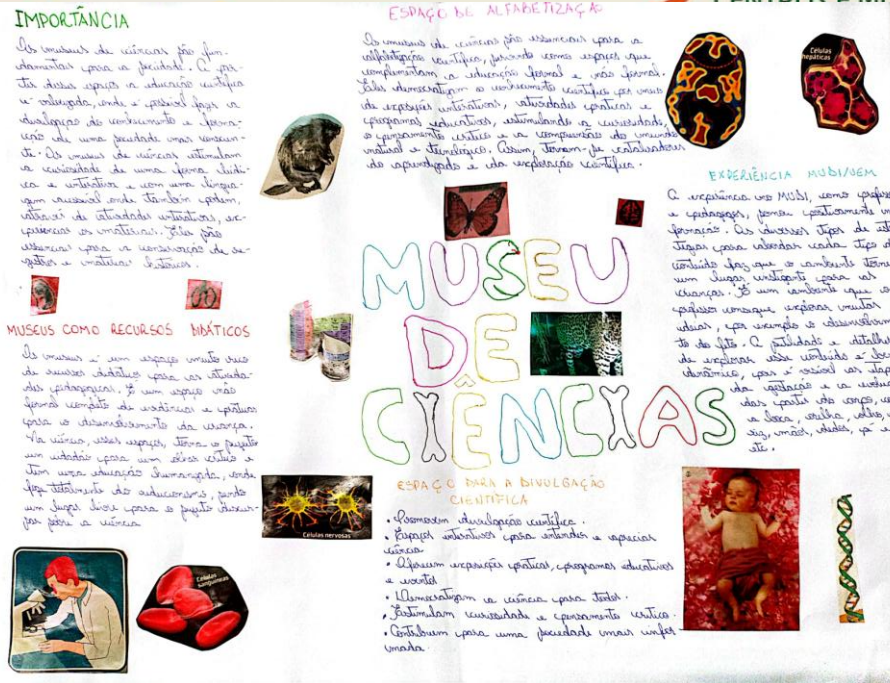 IMPORTÂNCIA
Os museus de ciências são fun-
damentais para a sociedade. A par-
tir desses espaço a educação científica
é valorizada, onde é possível faça a
divulgação do conhecimento e forma-
ção de uma sociedade mais conscien-
te. Os museus de ciências estimulam
a curiosidade de uma forma lúdi-
ca e interativa e com uma lingua-
gem acessível onde também podem,
através de atividades interativas, ex-
os materiais. São
essenciais para a conservação de re-
gistros e materiais históricos.
MUSEUS COMO RECURSOS DIDÁTICOS
Os museus é um espaço muito rico
de recursos didático para as ativida-
des pedagógicas. É um espaço não
formal completo de evidências e práticas
para o desenvolvimento da criança.
Na ciência, esses espaços, torna o sujeito
um cidadão para um olhar crítico e
tem uma educação humanizada, onde
foge totalmente do educacionismo, sendo
um lugar livre para o sujeito discur-
sar sobre a ciência
Células
sanguíneas
ESPAÇO DE ALFABETIZAÇÃ
Os museus de ciências são essenciais para a
alfabetização científica, servindo como espaços que
complementam a educação formal e não formal.
Eles democratizam o conhecimento científico por meio
de exposições interativas, atividades práticas e
programas educativos, estimulando a curiosidade,
o pensamento crítico e a compreensão do mundo
natural e tecnológico. Assim, tornam-se catalisadores
do aprendizado e da exploração científica.
MUSEU
DE
CIÊNCIAS
Células nervosas
ESPAÇO PARA A DIVULGAÇÃO
CIENTÍFICA
• Promovem divulgação científica.
• Espaços interativos para entender e apreciar
ciência
• Oferecem exposições práticas, programas educativos
e eventos
• Democratizam a ciência para todos.
• Estimulam curiosidade e pensamento crítico.
• Contribuem para uma sociedade mais infor
mada.
Células
hepáticas
EXPERIÊNCIA MUDI/UEM
A experiência no MUDI, como profess
e pedagogos, somou positivamente na
formação. Os diversos tipos de est
tégias para abordar cada tipo d
conteúdo faz que o ambiente torne
um lugar instigante para as
crianças. É um ambiente que o
professor consegue explorar muitas
ideias, por exemplo o desenvolvim
to do feto. A
de explorar esse conteúdo é
dinâmico, pois é visível as etap
da gestação e a
das partes do corpo, co
a boca, orelha, olhos,
riz, mãos, dedos, pé e
etc.